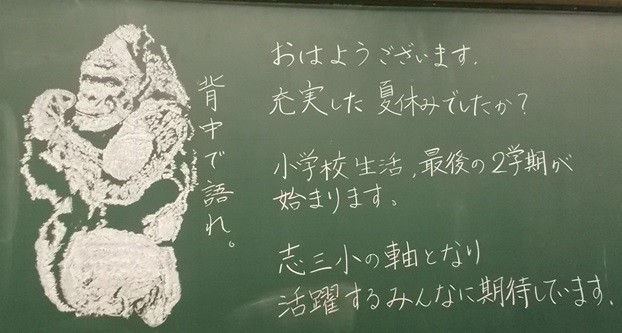 背中で語れ。
おはようございます.
充実した夏休みでしたか?
小学校生活,最後の2学期が
始まります。
志三小の軸となり
活躍するみんなに期待しています.